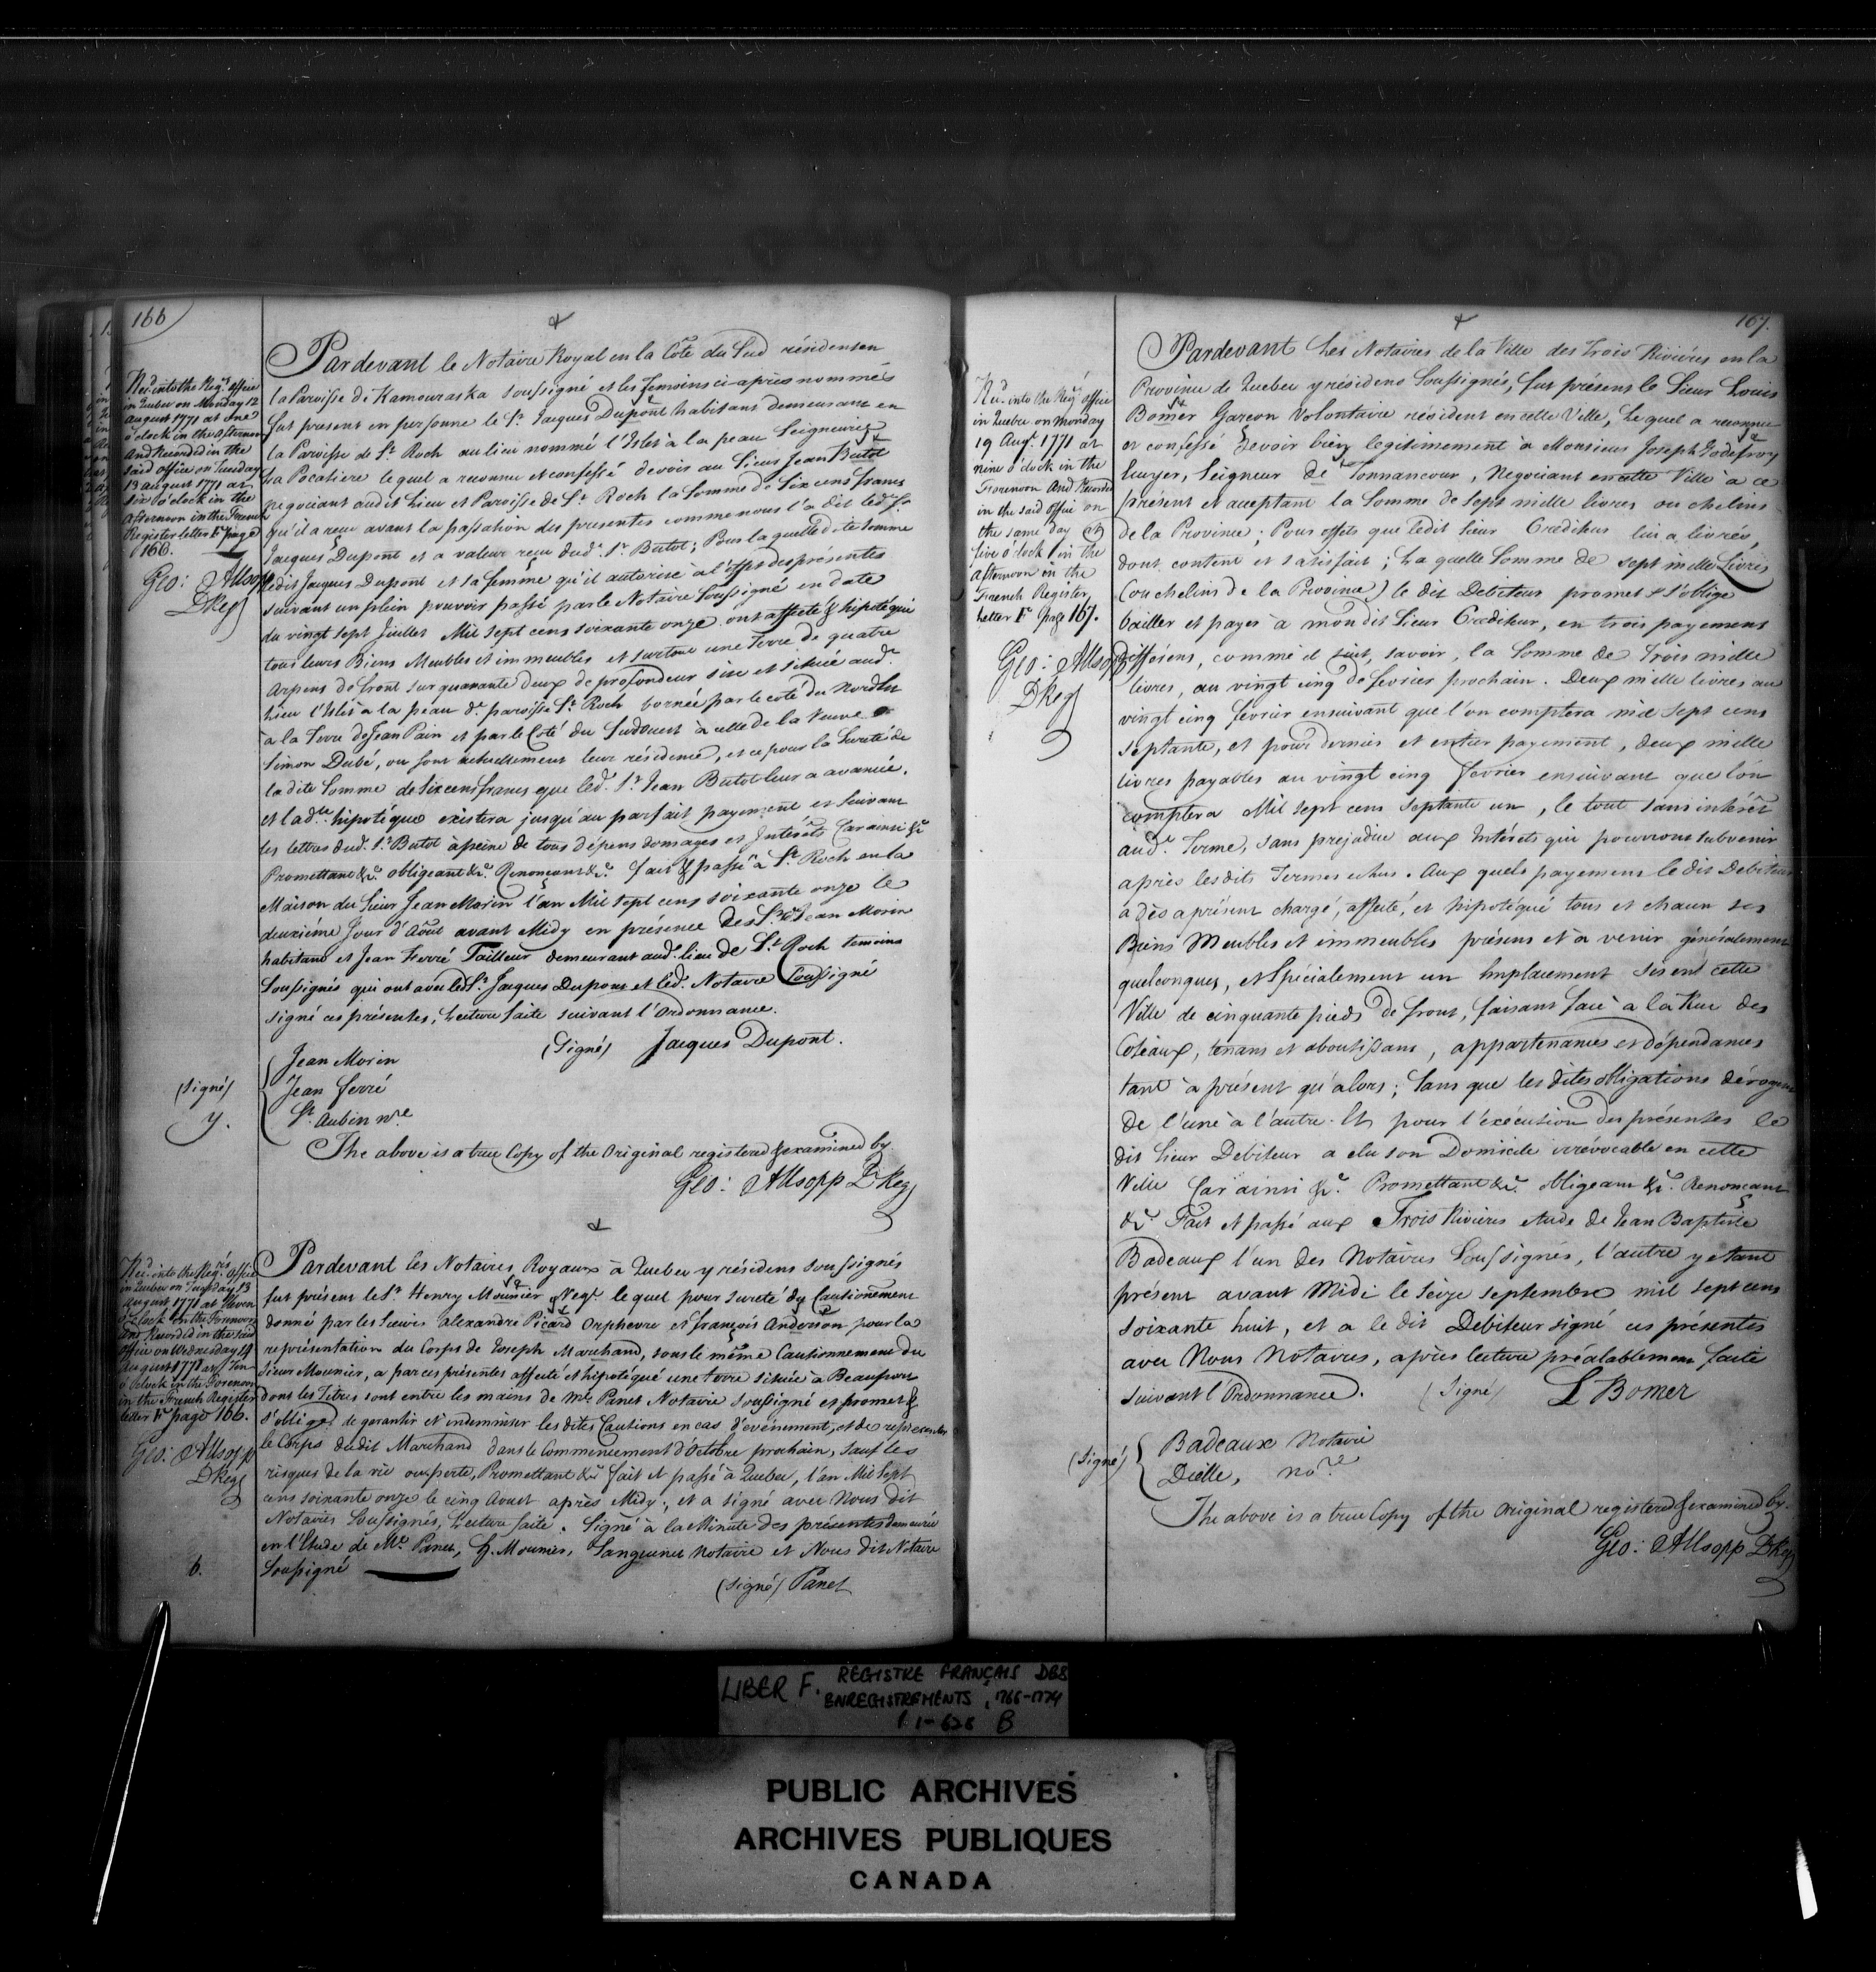 166
Rec.d into the Reg.rs Office
in Quebec on Monday 12
August 1771 at one
o'clock in the afternoon
And Recorded in the
said office on Tuesday
13 August 1771 at
six o'clock in the
afternoon in the French
Register letter F page
166.
Geo: Allsopp
DReg
Pardevant le Notaire Royal en la Côte du Sud résidensen
la Paroisse de Kamouraska soussigné et les Temoins ci-après nommés
fut present en personne le Sr. Jacques Dupont habitans demeurant en
la Paroisse de St. Roch au lieu nommé l'Islet à la peau Seigneurie
La Pocatiere lequel a reconnu et confessé devoir au Sieur Jean Butot
negociant audit Lieu et Paroisse de St. Roch la Somme de Six cens francs
qu'il a reçu avant la passation des presentes comme nous l'a dit led. Sr.
Jacques Dupont et a valeur reçu dud. Sr. Butot; Pour laquelle dite somme
ledit Jacques Dupont et sa femme qu'il autorise à l'effet des présentes
suivant un plein pouvoir passé par le Notaire Soussigné en date
du vingt sept Juillet Mil sept cens soixante onze ont affecté & hipotéqué
tous leurs Biens Meubles et immeubles et surtout une Terre de quatre
arpens de front sur quarante deux de profondeur sise et située aud.
Lieu l'Islet à la peau d. paroisse St. Roch bornée par le coté du Nordest
à la Terre de Jean Pain et par le Coté du Sudouest à celle de la Veuve
Simon Dubé, ou sont actuellement leur résidence, et ce pour la Sureté de
la dite Somme de Six cens francs que led. Sr. Jean Butot leur a avancée.
et lad.te hipotéque existera jusqu'au parfait payement et suivant
les lettres dud. Sr. Butot à peine de tous dépens domages et Intérêts Car ainsi &c
Promettant &c. obligeant &c. Renonçant &c. fait & passé à St. Roch en la
Maison du Sieur Jean Morin l'an Mil sept cens soixante onze le
deuxiéme Jour d'Août avant Midy en présence des Srs. Jean Morin
habitant et Jean Ferré Tailleur demeurant aud. lieu de St. Roch temoins
Soussignés qui ont avec led. Sr. Jacques Dupont et led. Notaire Soussigné
signé ces présentes, Lecture faite suivant l'ordonnance.
(Signé) Jacques Dupont.
(signé)
Jean Morin
Jean ferré
St. Aubin n.re
y.
The above is a true Copy of the Original registered & examined by
Geo: Allsopp DReg
Rec.d into the Reg.rs Office
in Quebec on Tuesday 13
August 1771 at Eleven
o'Clock in the Forenoon
and Recorded in the said
office on Wednesday 14
August 1771 at Ten
o'clock in the Forenoon
in the French Register
letter F page 166.
Geo: Allsopp
DReg
Pardevant les Notaires Royaux à Quebec y résidens soussignés
fut présent le Sr. Henry Mounier Neg.t lequel pour sureté du Cautionnement
donné par les Sieurs Alexandre Picard Orphevre et françois Anderson pour la
représentation du Corps de Joseph Marchand, sous le même Cautionnement du
Sieur Mounier, a par ces présentes affecté et hipotéqué une terre située à Beauport
dont les Titres sont entre les mains de Me. Panet Notaire soussigné et promet &
s'oblige de garantir et indemniser lesdites Cautions en cas d'evenement, et de representer
le Corps dudit Marchand dans le Commencement d'Octobre prochain, sauf les
risques de la vie ou perte, Promettant &c fait et passé à Quebec, l'an Mil Sept
cens soixante onze le cinq Aoust après Midy; et a signé avec Nous dit
Notaires Soussignés, Lecture faite. Signé à la Minute des présentes demeurée
en l'Etude de Me. Panet, H. Mounier, Sanguinet Notaire et Nous dit Notaire
Soussigné
6.
(signé) Panet
167.
Rec.d into the Reg.rs office
in Quebec on Monday
19 Aug.t 1771 at
nine o'clock in the
Forenoon And Recorded
in the said office on
the same day at
five o'clock in the
afternoon in the
French Register
Letter F page 167.
Geo: Allsopp
DReg
Pardevant Les Notaires de la Ville des Trois Riviéres en la
Province de Quebec y résidens Soussignés, fut présent le Sieur Louis
Bomer Garçon Volontaire résident en cette Ville, Lequel a reconnu
et confessé devoir bien legitimement à Monsieur Joseph Godefroy
Ecuyer, Seigneur de Tonnancour, Negociant en cette Ville à ce
présent et acceptant la Somme de Sept mille livres ou chelins
de la Province; Pour effets que ledit Sieur Créditeur lui a livrés,
dont content et satisfait; La quelle Somme de sept mille Livres
(ou chelins de la Province) le dit Debiteur promet & s'oblige
bailler et payer à mondit Sieur Créditeur, en trois payemens
differens, comme il suit, savoir, la Somme de Trois mille
livres, au vingt cinq de fevrier prochain. Deux mille livres au
vingt cinq fevrier ensuivant que l'on comptera mil Sept cens
septante, et pour dernier et entier payement, deux mille
livres payables au vingt cinq fevrier ensuivant que l'on
comptera Mil sept cens septante un, le tout sans intérêt
aud. Terme, sans prejudice aux Intérêts qui pourront subvenir
après lesdits Termes echus. Aux quels payemens le dit Debiteur
a dès aprésent chargé, affecté, et hipotéqué tous et chacun ses
Biens Meubles et immeubles présens et a venir généralement
quelconques, et Spécialement un Emplacement sis en cette
Ville de cinquante pieds de front, faisant face à la Rue des
Coteaux, tenans et aboutissans, appartenances et dépendances
tant à présent qu'alors; Sans que les dites obligations dérogent
de l'une à l'autre. Et pour l'exécution des présentes le
dit Sieur Debiteur a elu son Domicile irrévocable en cette
Ville Car ainsi &c. Promettant &c. obligeant &c. Renonçant
&c. Fait et passé aux Trois Rivières etude de Jean Baptiste
Badeaux l'un des Notaires Soussignés, l'autre y etant
présent avant Midi le Seize septembre mil sept cens
soixante huit, et a le dit Debiteur signé ces présentes
avec Nous Notaires, après lecture préalablement faite
suivant l'Ordonnance. (Signé) L Bomer
(Signé)
Badeaux Notaire
Dielle, no.re
The above is a true Copy of the Original registered & examined by
Geo: Allsopp DReg
LIBER F. REGISTRE FRANÇAIS DES
ENREGISTREMENTS, 1766-1774
1-626 B
PUBLIC ARCHIVES
ARCHIVES PUBLIQUES
CANADA